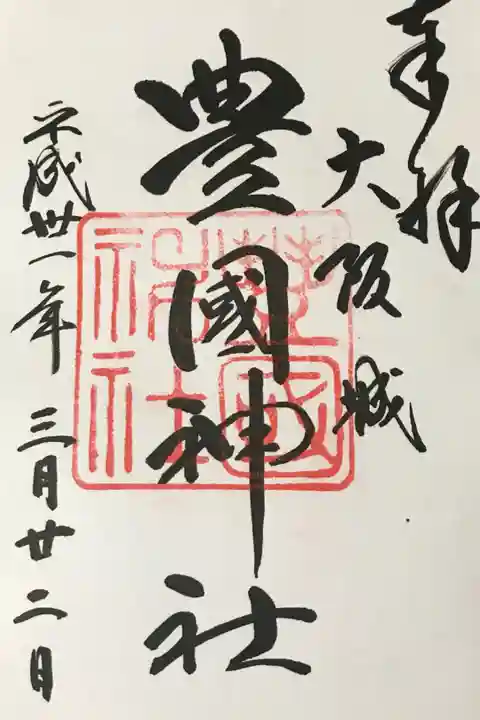 奉拝
大阪城
豊國神社
豊國神社
平成卅一年 三月廿二日